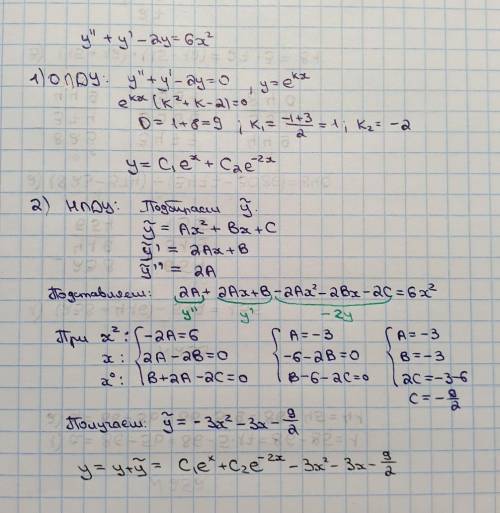 y'' + y' - 2y = 6x²
1) ОЛДУ: y'' + y' - 2y = 0 , y = e^{kx}
e^{kx} (k² + k - 2) = 0
D = 1 + 8 = 9 ; k₁ = \frac{-1+3}{2} = 1 ; k₂ = -2
y = C₁e^{x} + C₂e^{-2x}
2) НЛДУ: Подбираем ỹ.
ỹ = Ax² + Bx + C
ỹ' = 2Ax + B
ỹ'' = 2A
Подставляем: 2A + 2Ax + B - 2Ax² - 2Bx - 2C = 6x²
y'' y' -2y
При x²: { -2A = 6 { A = -3 { A = -3
x: { 2A - 2B = 0 { -6 - 2B = 0 { B = -3
x⁰: { B + 2A - 2C = 0 { B - 6 - 2C = 0 { 2C = -3 - 6
C = -\frac{9}{2}
Получаем: ỹ = -3x² - 3x - \frac{9}{2}
y = y + ỹ = C₁e^{x} + C₂e^{-2x} - 3x² - 3x - \frac{9}{2}